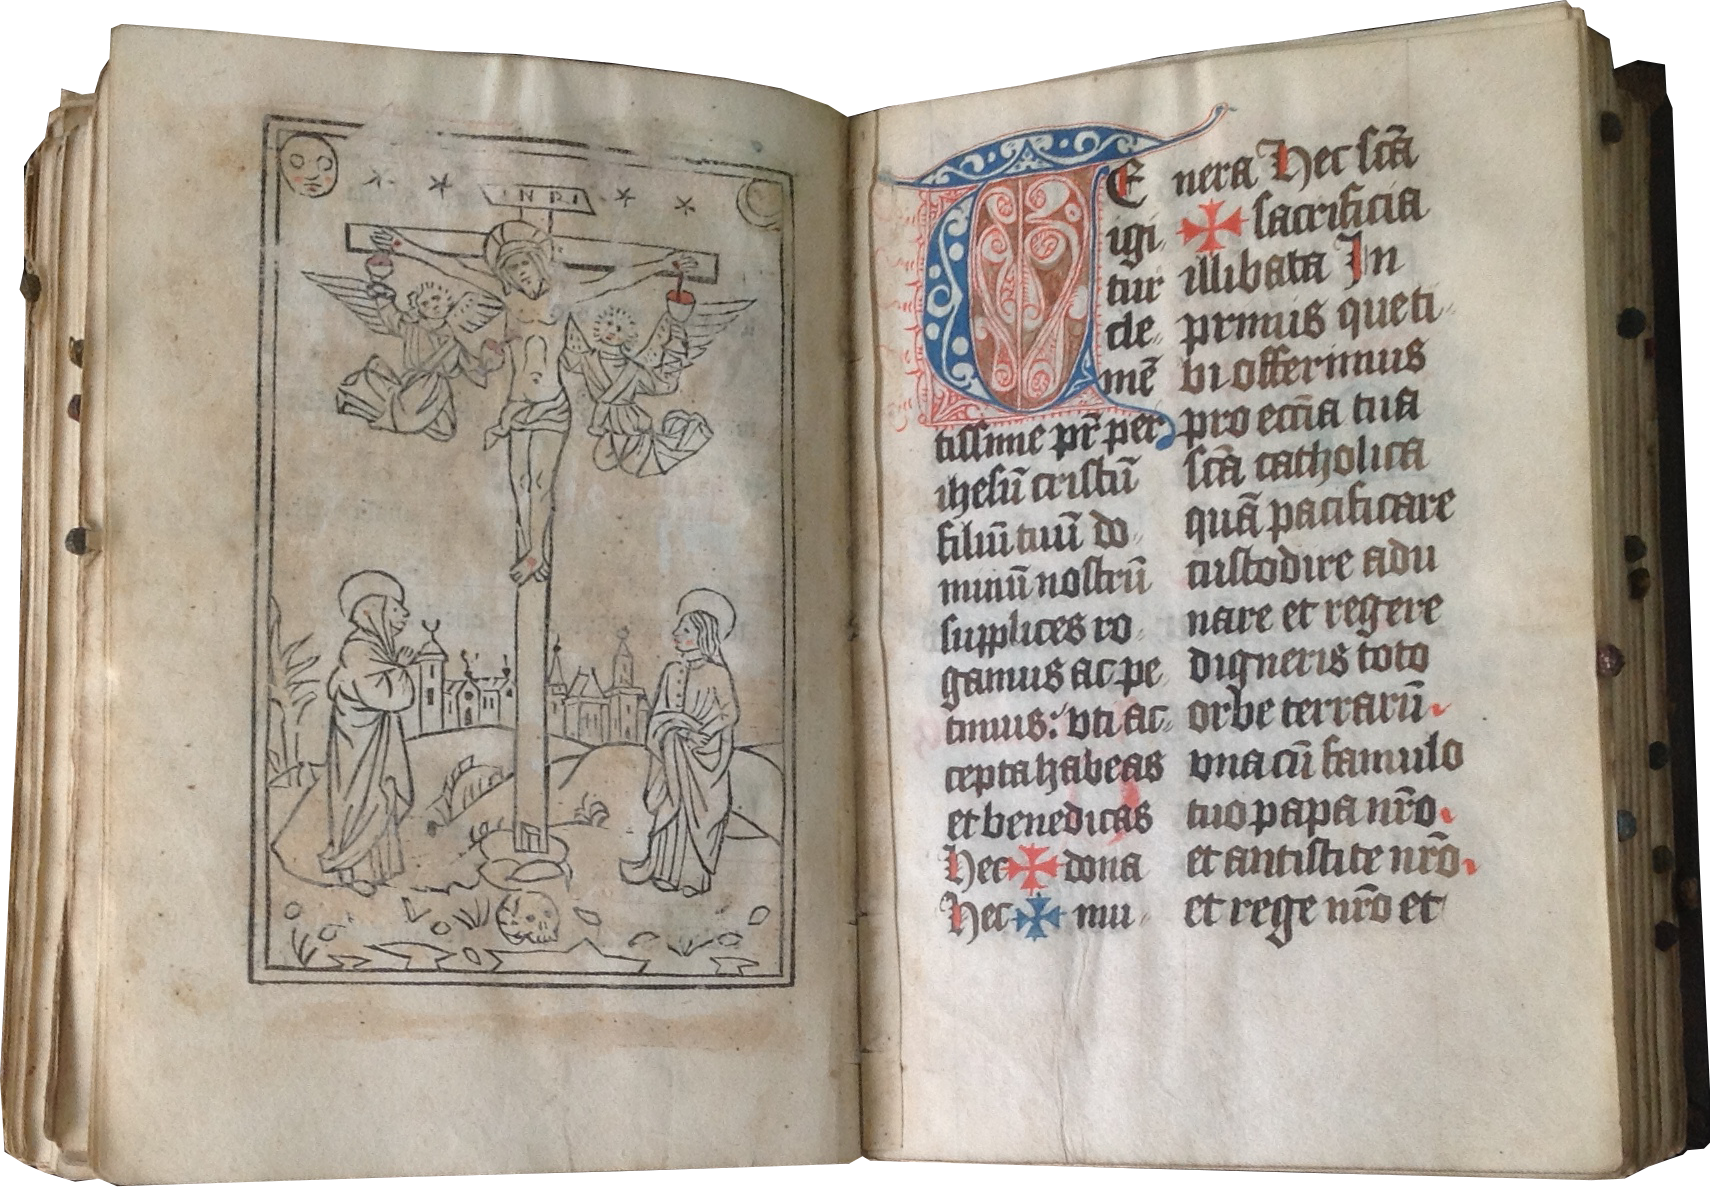 INRI
TE
igi
tur
cle
mē
tissime pr̄ per
ihesū cristū
filiū tuū do
minū nostrū
supplices ro
gamus ac pe
timus: vti ac
cepta habeas
et benedicas
Hec ✠ dona
Hec ✠ mu
nera Hec scā
✠ sacrificia
illibata In
primis que ti
bi offerimus
pro eccīa tua
scā catholica
quā pacificare
custodire adu
nare et regere
digneris toto
orbe terrarū
vna cū famulo
tuo papa nr̄o
et antistite nr̄o
et rege nr̄o et